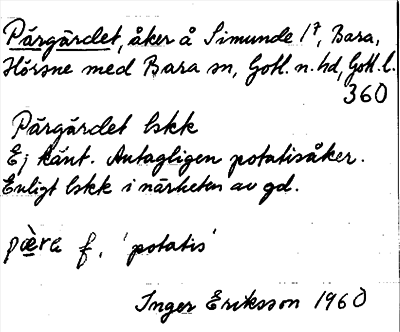 Pärgärdet, åker å Simunde 1⁷, Bara,
Hörsne med Bara sn, Gotl. n. hd, Gotl. l.
360
Pärgärdet lskk
Ej känt. Antagligen potatisåker.
Enligt lskk i närheten av gd.
pæ̀ra f. 'potatis'
Inger Eriksson 1960